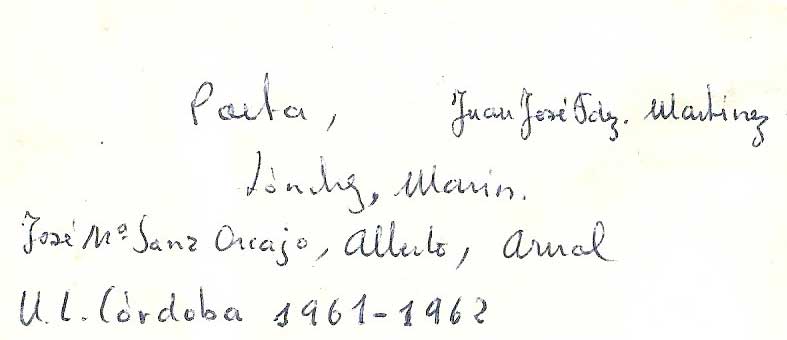 Poeta, Juan José Fdz. Martinez
Sánchez, Marin.
José Mª Sanz Orcajo, Alberto, Arnal
U. L. Córdoba 1961-1962